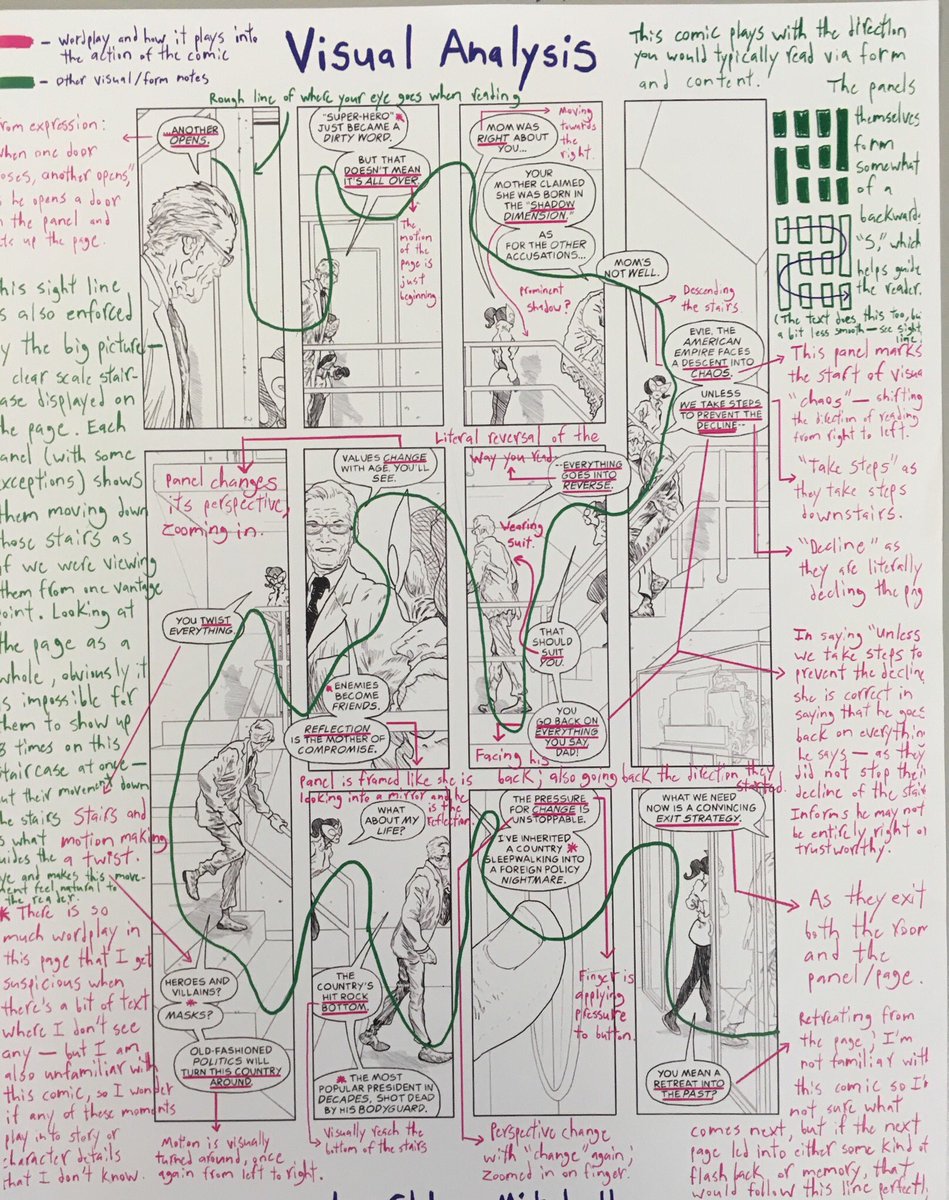 Visual Analysis
- wordplay and how it plays into
the action of the comic
- other visual/form notes
This comic plays with the direction
you would typically read via form
and content.
The panels
themselves
form
somewhat
of a
backward
"S," which
helps guide
the reader.
(The text does this too, but
a bit less smooth — see sight
line)
Rough line of where your eye goes when reading
from expression:
when one door
closes, another opens,"
as he opens a door
in the panel and
up the page.
...ANOTHER
OPENS.
"SUPER-HERO"
JUST BECAME A
DIRTY WORD.
BUT THAT
DOESN'T MEAN
IT'S ALL OVER.
The
motion
of the
page is
just
beginning
MOM WAS
RIGHT ABOUT
YOU...
Moving
towards
the
right.
YOUR
MOTHER CLAIMED
SHE WAS BORN IN
THE "SHADOW
DIMENSION."
AS
FOR THE OTHER
ACCUSATIONS...
prominent
shadow?
MOM'S
NOT WELL.
Descending
the stairs.
EVIE, THE
AMERICAN
EMPIRE FACES
A DESCENT INTO
CHAOS.
UNLESS
WE TAKE STEPS
TO PREVENT THE
DECLINE--
This panel marks
the start of visual
"chaos" — shifting
the direction of reading
from right to left.
"Take steps" as
they take steps
downstairs.
"Decline" as
they are literally
decling the pag
In saying "unless
we take steps to
prevent the decline
she is correct in
saying that he goes
back on everything
he says — as they
did not stop their
decline of the stair
Informs he may not
be entirely right or
trustworthy.
This sight line
is also enforced
by the big picture —
clear scale stair-
case displayed on
the page. Each
panel (with some
exceptions) shows
them moving down
those stairs as
if we were viewing
them from one vantage
point. Looking at
the page as a
whole, obviously it
is impossible for
them to show up
8 times on this
staircase at once —
but their movement down
the stairs
is what
guides the
eye and makes this move-
ment feel natural to
the reader.
Literal reversal of the
way you read
--EVERYTHING
GOES INTO
REVERSE.
Wearing
suit.
THAT
SHOULD
SUIT
YOU.
YOU
GO BACK ON
EVERYTHING
YOU SAY
DAD!
Facing his
back; also going back the direction they
started.
VALUES CHANGE
WITH AGE. YOU'LL
SEE.
Panel changes
its perspective,
zooming in.
ENEMIES
BECOME
FRIENDS.
REFLECTION
IS THE MOTHER OF
COMPROMISE.
Panel is framed like she is
looking into a mirror and he
is the
reflection.
YOU TWIST
EVERYTHING.
Stairs and
motion making
a twist.
HEROES AND
VILLAINS?
MASKS?
OLD-FASHIONED
POLITICS WILL
TURN THIS COUNTRY
AROUND.
Motion is visually
turned around, once
again from left to right.
* There is so
much wordplay in
this page that I get
suspicious when
there's a bit of text
where I don't see
any — but I am
also unfamiliar with
this comic, so I wonder
if any of these moments
play into story or
character details
that I don't know.
WHAT
ABOUT MY
LIFE?
THE
COUNTRY'S
HIT ROCK
BOTTOM.
THE MOST
POPULAR PRESIDENT IN
DECADES, SHOT DEAD
BY HIS BODYGUARD.
Visually reach the
bottom of the stairs
THE PRESSURE
FOR CHANGE IS
UNSTOPPABLE.
I'VE INHERITED
A COUNTRY
SLEEPWALKING INTO
A FOREIGN POLICY
NIGHTMARE.
Finger is
applying
pressure
to button.
Perspective change
with "change" again;
zoomed in on finger.
WHAT WE NEED
NOW IS A CONVINCING
EXIT STRATEGY.
YOU MEAN A
RETREAT INTO
THE PAST?
As they exit
both the room
and the
panel/page.
Retreating from
the page; I'm
not familiar with
this comic so I'm
not sure what
comes next, but if the next
page led into either some kind of
flashback or memory, that
would follow this line perfectly.